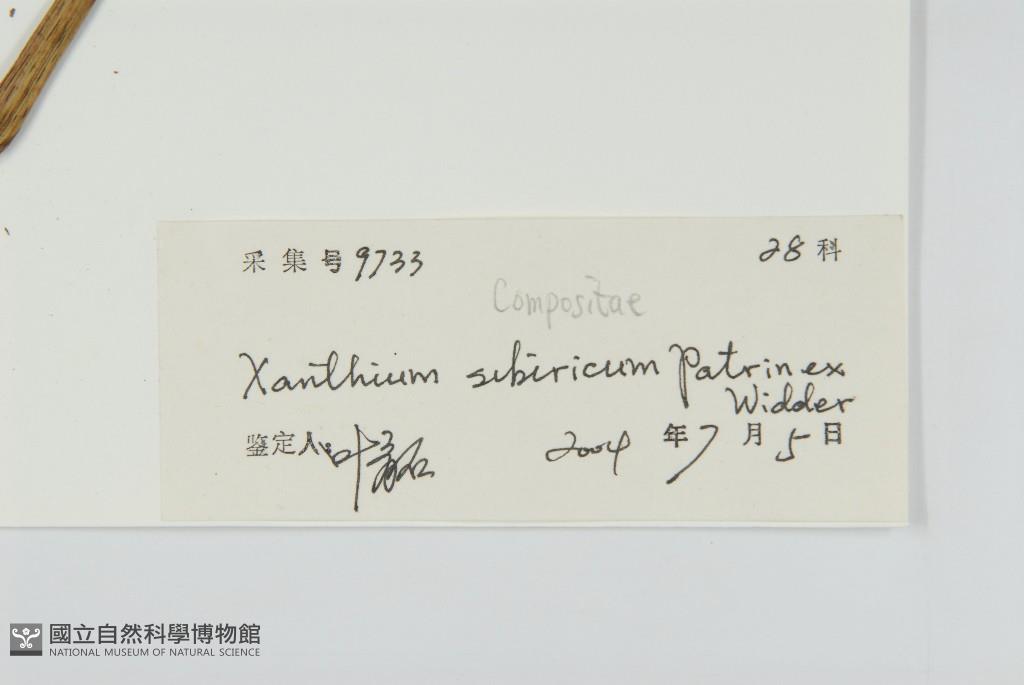 采集号 9733 28 科
Compositae
Xanthium sibiricum Patrin ex
Widder
鉴定人: 叶
2004 年 7 月 5 日
國立自然科學博物館
NATIONAL MUSEUM OF NATURAL SCIENCE